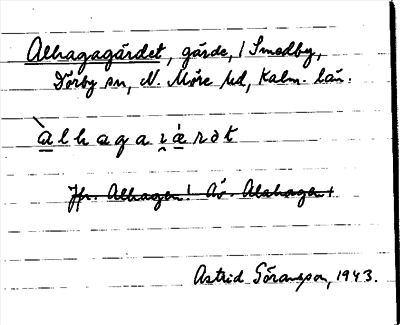 Alhagagärdet, gärde, i Smedby,
Dörby sn, N. Möre hd, Kalm. län.
àlhagaı̯æ̀rdət
Jfr. Alhagen! Äv. Alahagen!
Astrid Göransson, 1943.